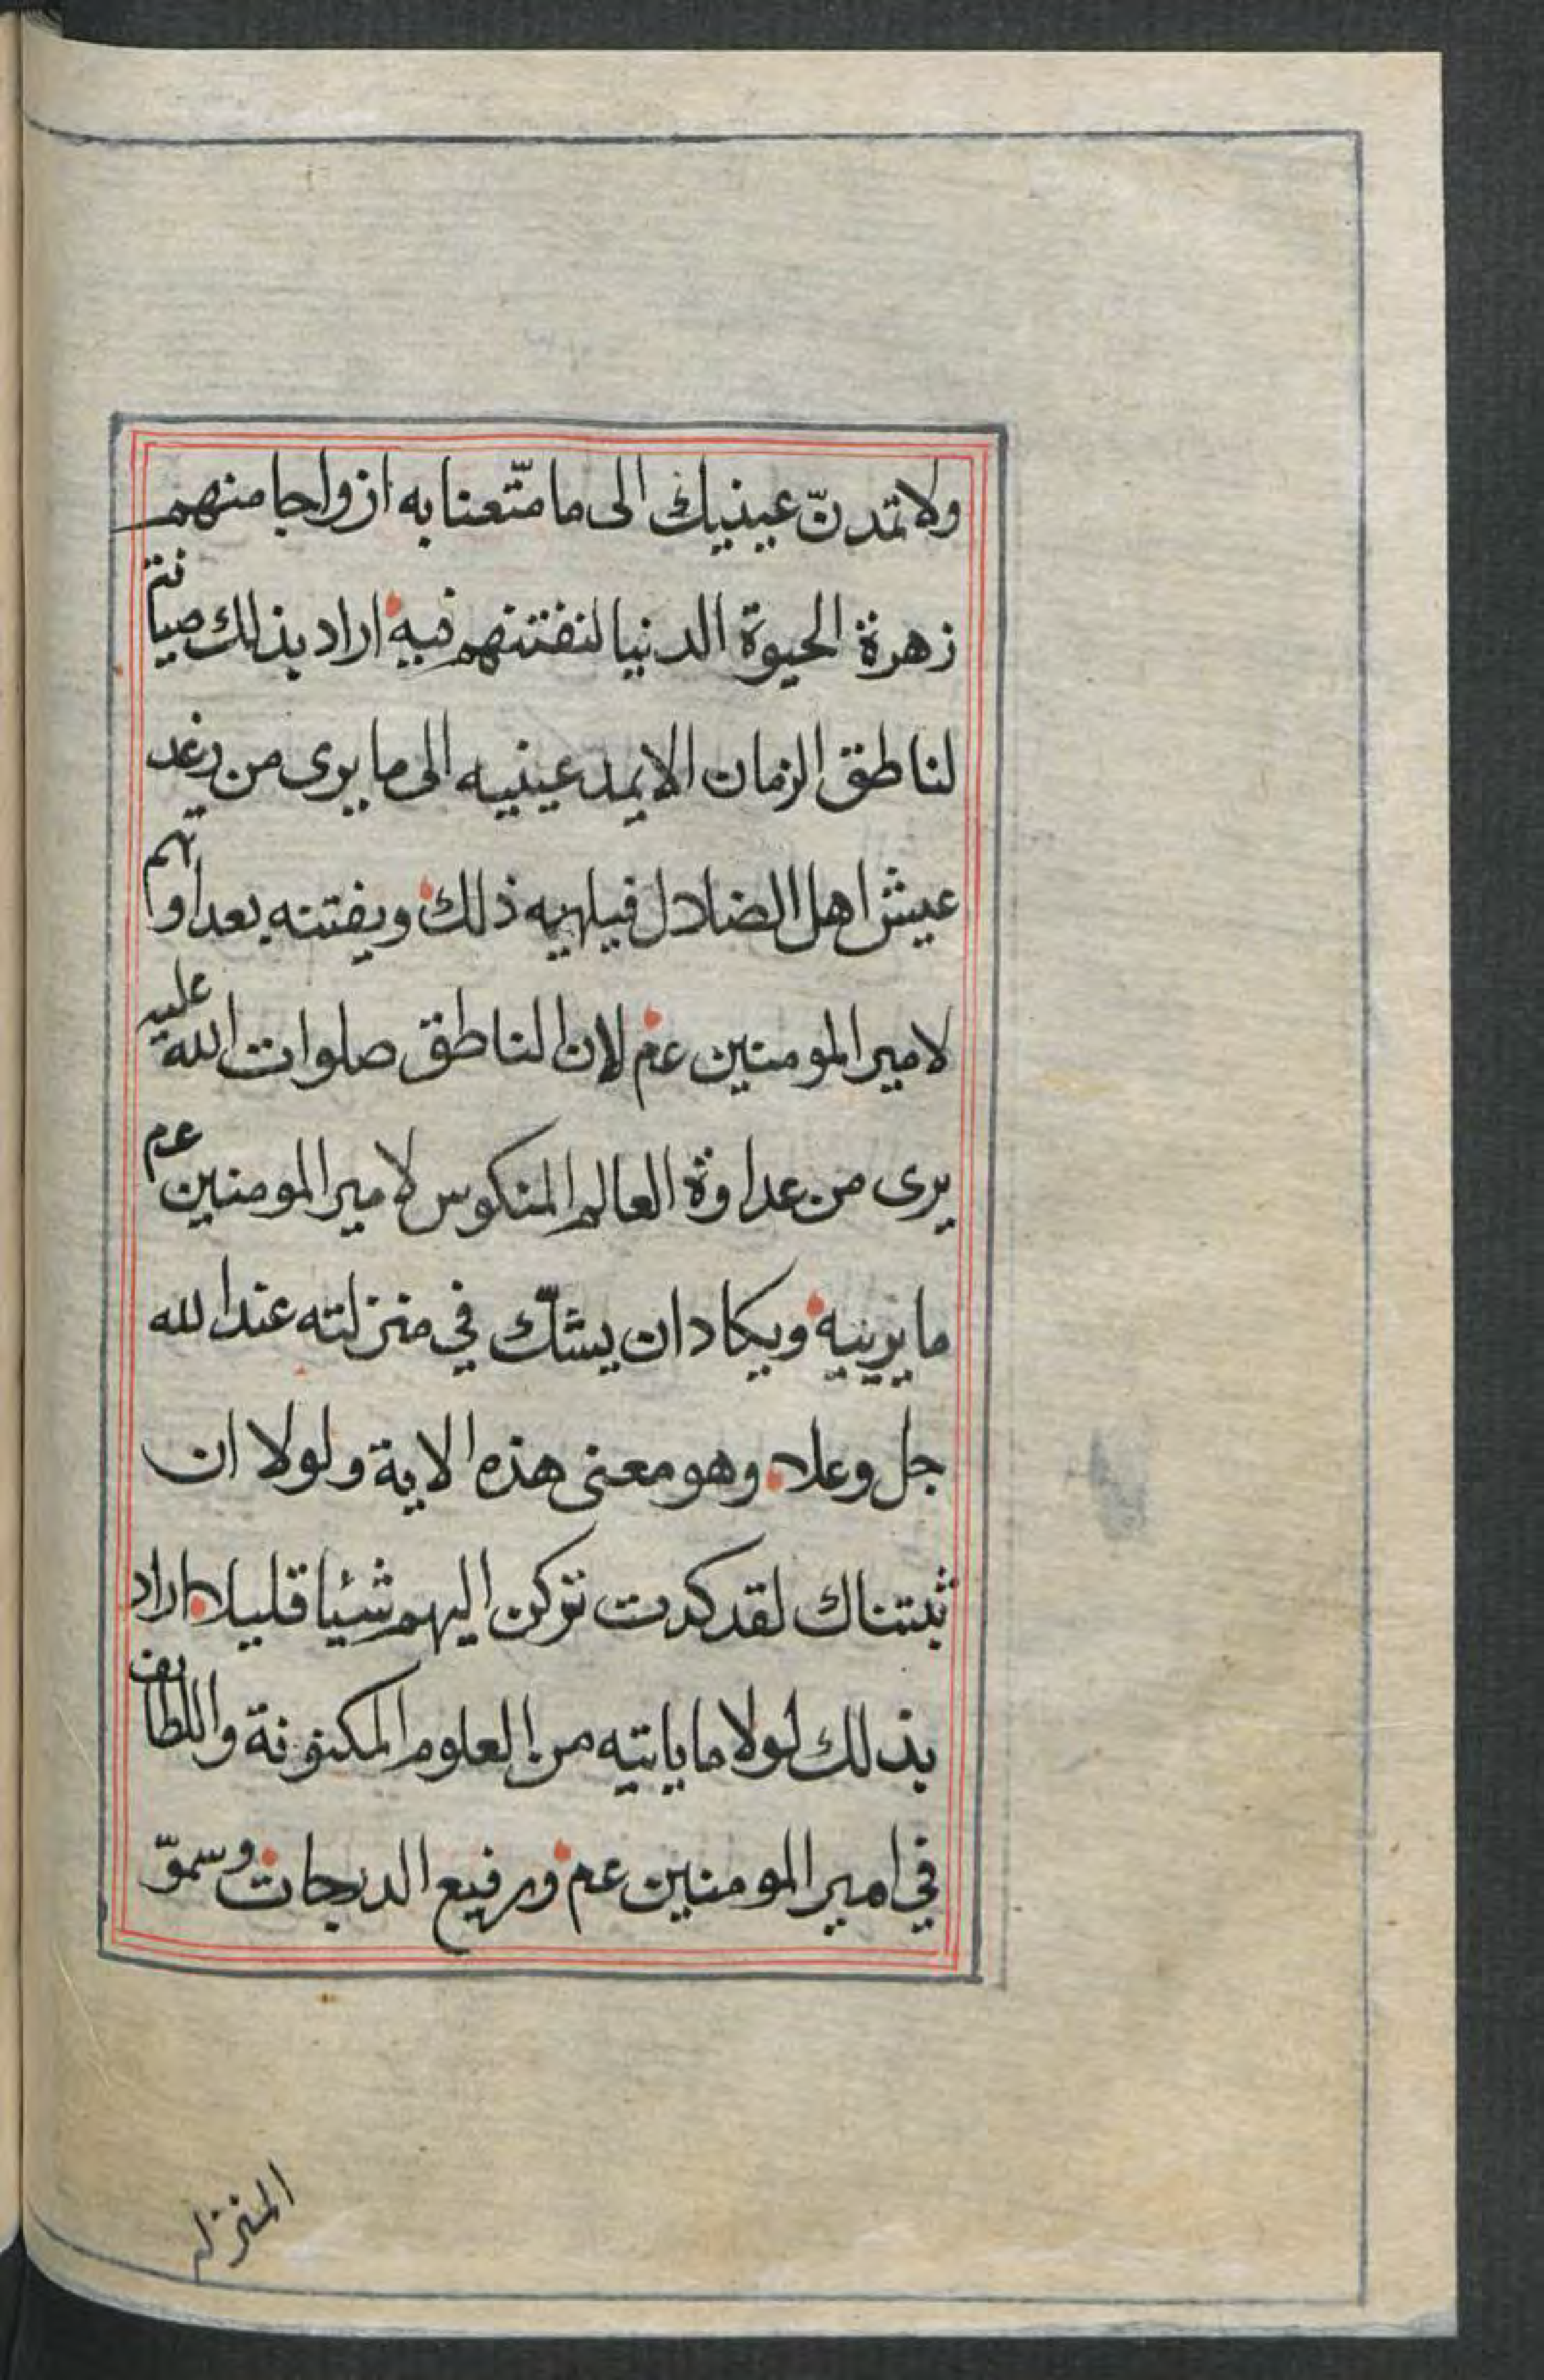 ولا تمدنّ عينيك الى ما متّعنا به ازواجا منهم
زهرة الحيوة الدنيا لنفتنهم فيه اراد بذلك صيانة
لناطق الزمان الا يمد عينيه الى ما يرى من رغد
عيش اهل الضلال فيلهيه ذلك ويفتنه بعداوتهم
لامير المومنين عم لان الناطق صلوات الله عليه
يرى من عداوة العالم المنكوس لامير المومنين عم
ما يريبه ويكاد ان يشكّ في منزلته عند الله
جل وعلا وهو معنى هذه الاية ولولا ان
ثبتناك لقد كدت تركن اليهم شئيا قليلا اراد
بذلك لولا ما ياتيه من العلوم المكنونة واللطايف
في امير المومنين عم ورفيع الدرجات وسموّ
المنزله